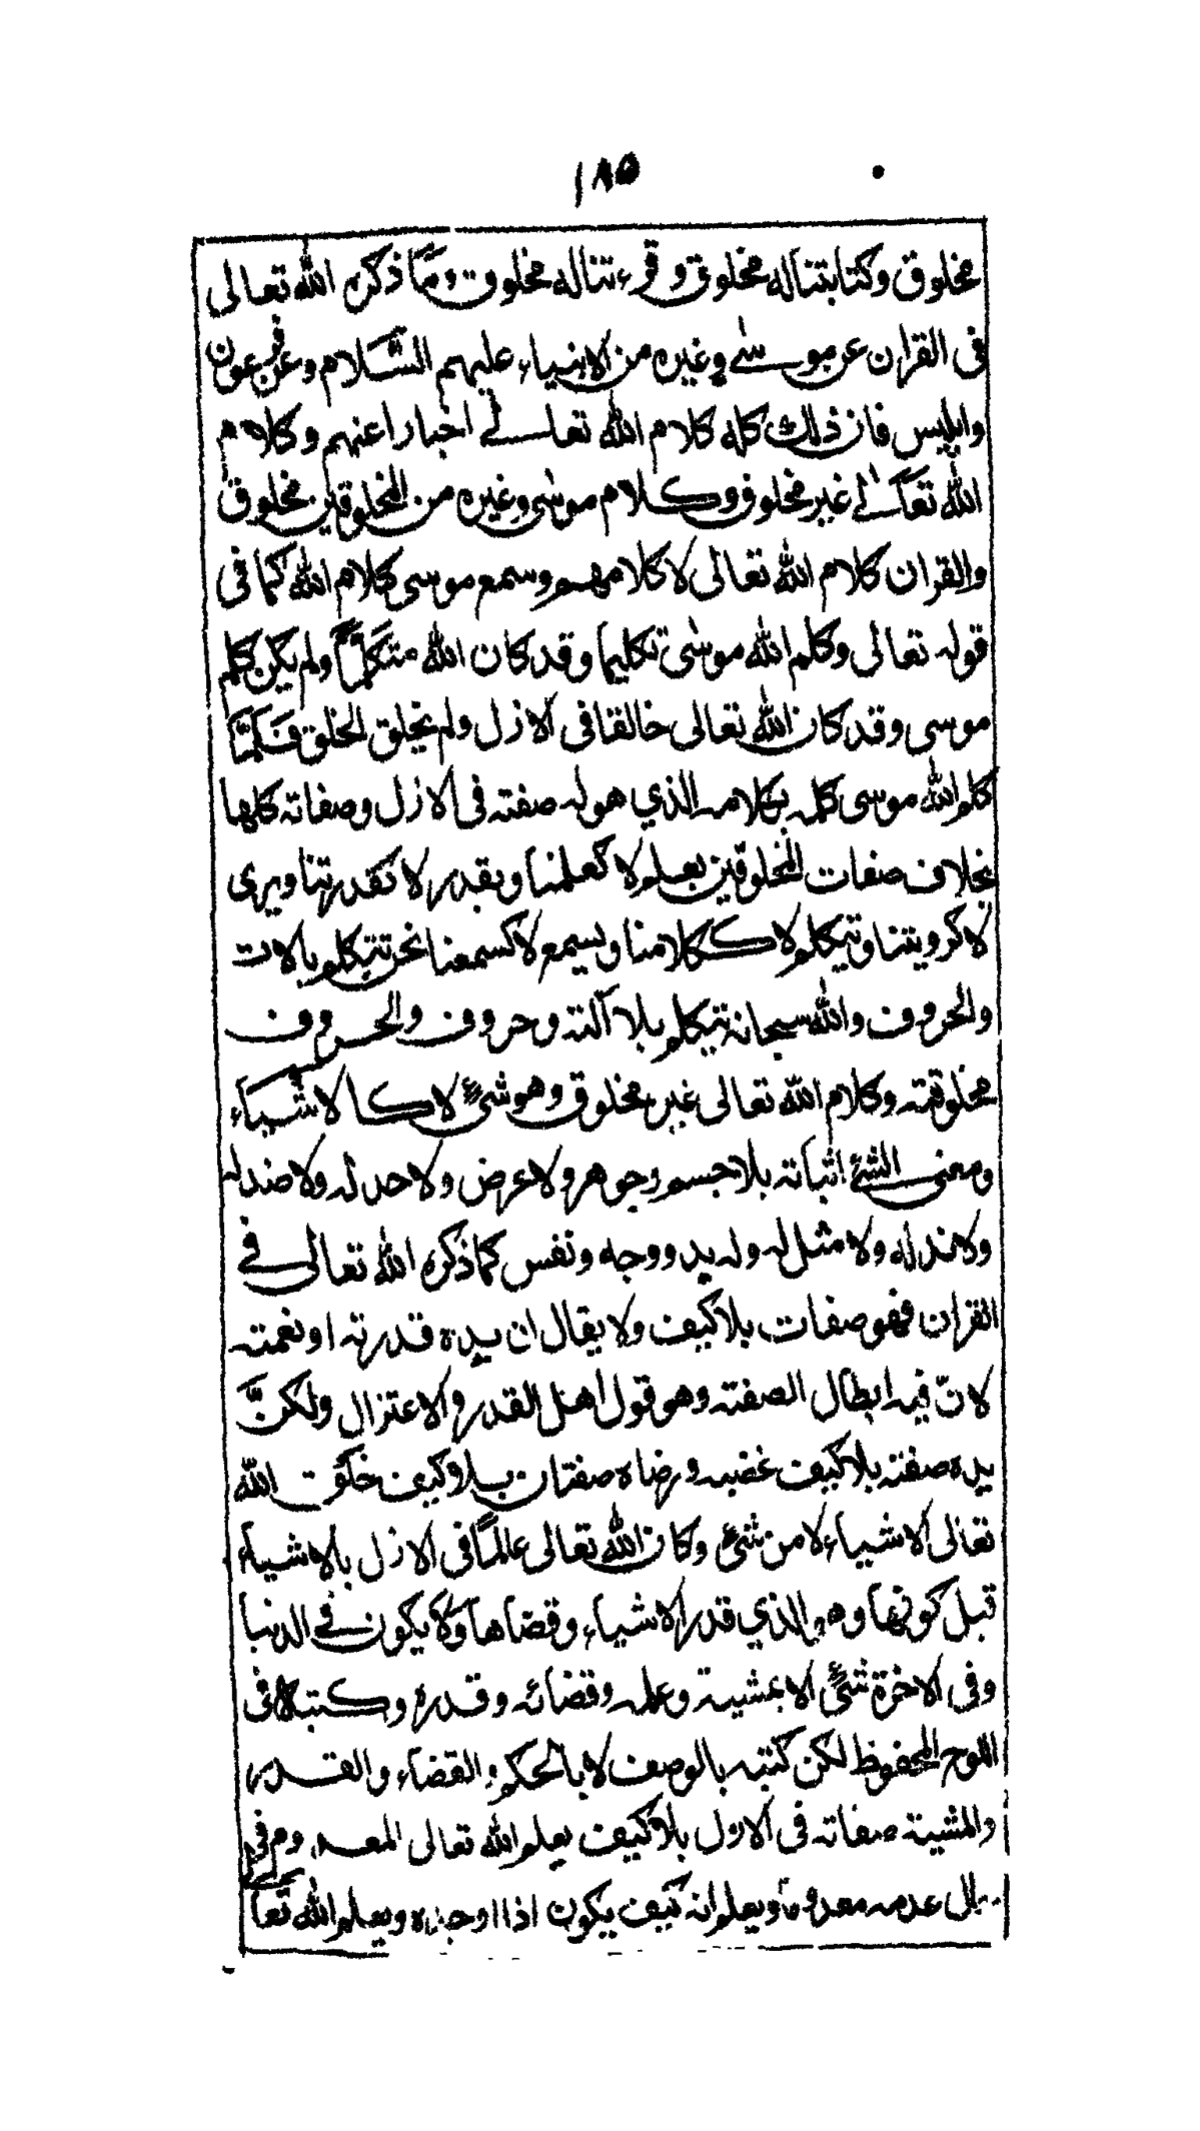 ١٨٥
مخلوق وكتابتناله مخلوق وقرءتناله مخلوق ومما ذكره الله تعالى
فى القران عن موسى وغيره من الانبياء عليهم السلام وعن فرعون
وابليس فان ذلك كله كلام الله تعالى اخبارا عنهم وكلام
الله تعالى غير مخلوق وكلام موسى وغيره من المخلوقين مخلوق
والقران كلام الله تعالى لا كلامهم وسمع موسى كلام الله كما فى
قوله تعالى وكلم الله موسى تكليما وقد كان الله متكلما ولم يكن كلم
موسى وقد كان الله تعالى خالقا فى الازل ولم يخلق الخلق فلما
كلم الله موسى كلمه بكلامه الذي هو له صفته فى الازل وصفاته كلها
بخلاف صفات المخلوقين يعلم لا كعلمنا ويقدر لا كقدرتنا ويرى
لا كرويتنا ويتكلم لا ككلامنا ويسمع لا كسمعنا نحن نتكلم بالات
والحروف والله سبحانه يتكلم بلا آلته وحروف والحروف
مخلوقته وكلام الله تعالى غير مخلوق وهو شئ لا كا لاشياء
ومعنى الشئ اثباته بلا جسم وجوهر ولا عرض ولا حد له ولا ضد له
ولا ند له ولا مثل له وله يد ووجه ونفس كما ذكره الله تعالى فى
القران فهو صفات بلا كيف ولا يقال ان يده قدرته او نعمته
لان فيه ابطال الصفته وهو قول اهل القدر والاعتزال ولكن
يده صفته بلا كيف غضبه ورضاه صفتان بلا كيف خلق الله
تعالى الاشياء لا من شئ وكان الله تعالى عالما فى الازل بالاشياء
قبل كونها وهو الذي قدر الاشياء وقضاها ولا يكون فى الدنيا
وفى الاخرة شئ الا بمشيته وعلمه وقضائه وقدره وكتبه فى
اللوح المحفوظ لكن كتبه بالوصف لا بالحكم والقضاء والقدر
والمشية صفاته فى الازل بلا كيف يعلم الله تعالى المعدوم فى
حال عدمه معدوما ويعلم انه كيف يكون اذا اوجده ويعلم الله تعا